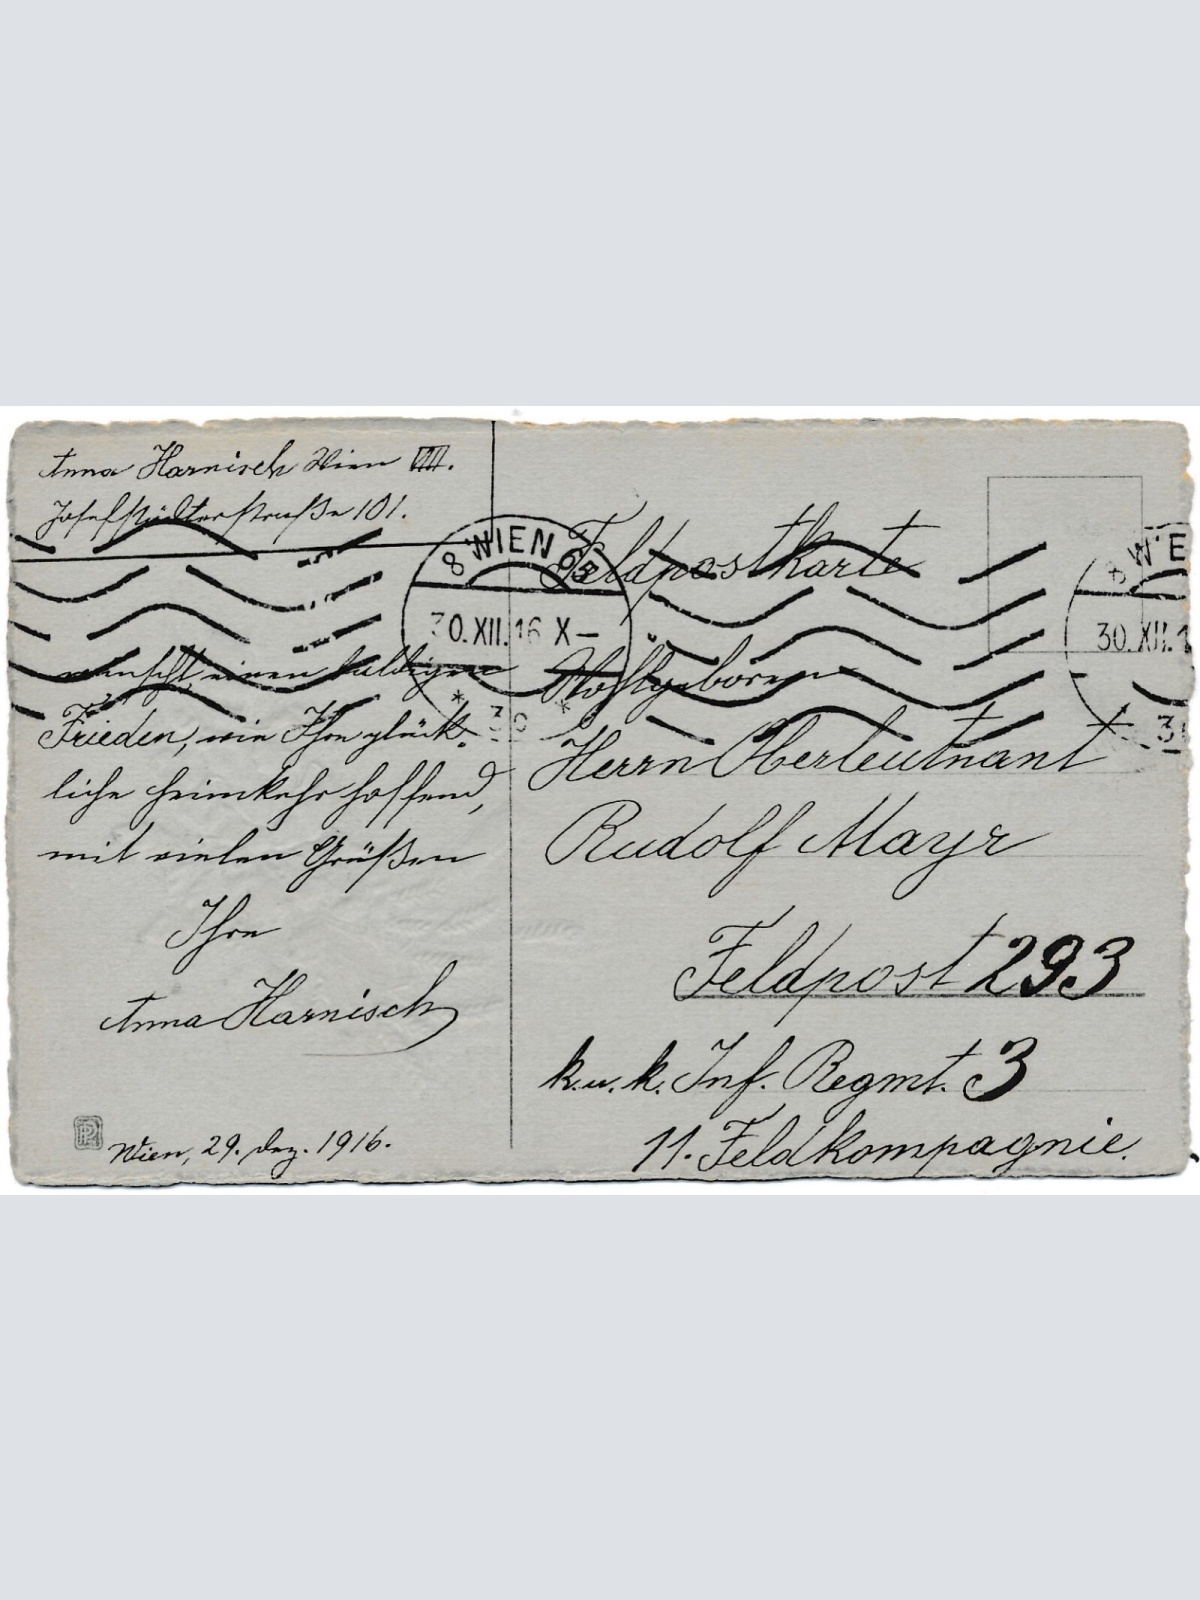 Anna Harnisch Wien VIII.
Josefstädterstraße 101.
wünscht einen baldigen
Frieden, wie Ihre glück-
liche Heimkehr hoffend,
mit vielen Grüßen
Ihre
Anna Harnisch
Wien, 29. Dez. 1916.
8 WIEN 63
30.XII.16 X–
* 30 *
Feldpostkarte
Wohlgeboren
Herrn Oberleutnant
Rudolf Mayr
Feldpost 293
k.u.k. Inf. Regmt. 3
11. Feldkompagnie.
8 WIE
30.XII.1
3